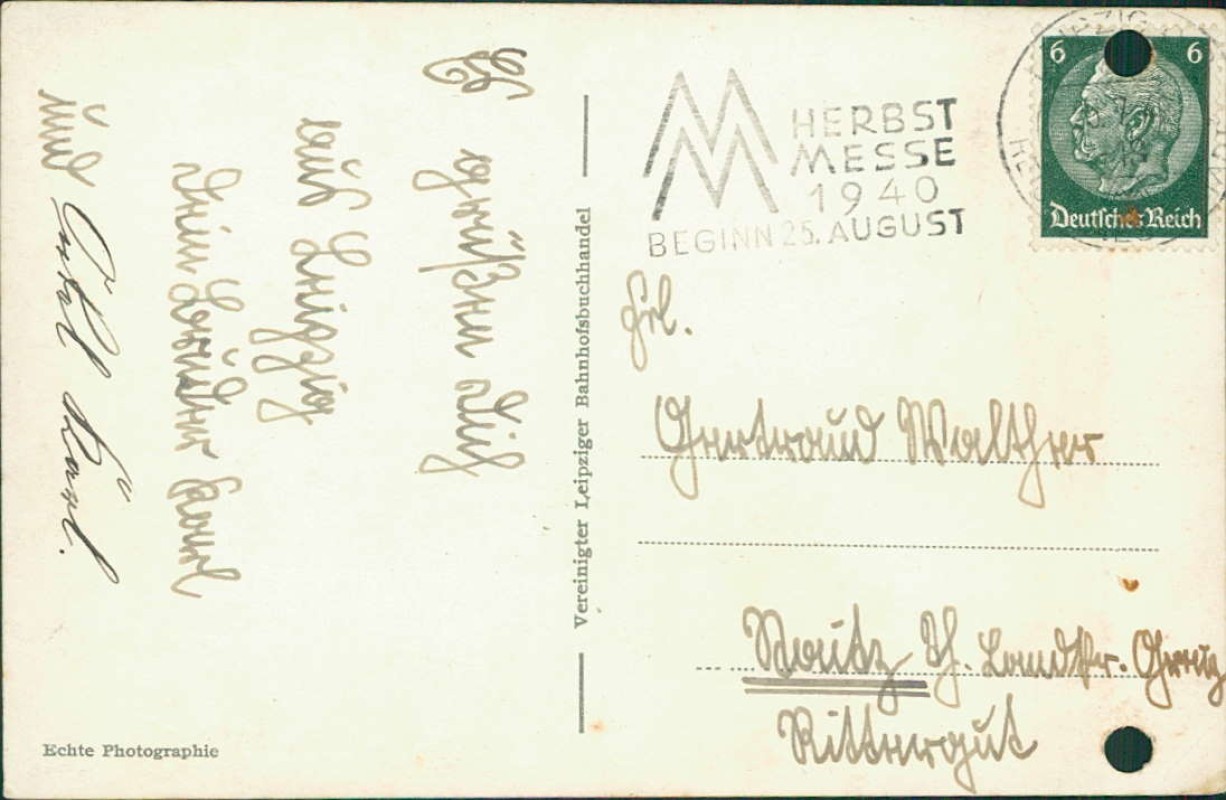 Es
grüßen Dich
aus Leipzig
Dein Bruder Karl
und Onkel Karl.
Vereinigter Leipziger Bahnhofsbuchhandel
Echte Photographie
HERBST
MESSE
1940
BEGINN 25. AUGUST
6 6
Deutsches Reich
Frl.
Gertraud Walther
Th. Landkr. Greiz
Rittergut